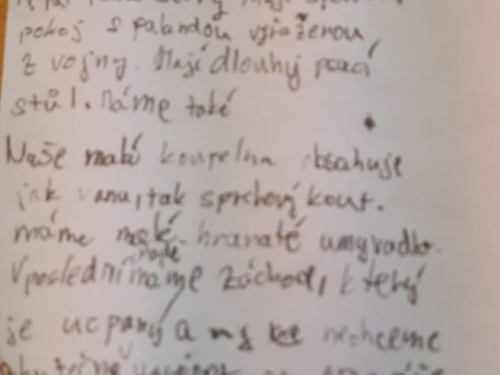 pokoj s palandou vyraženou
z vojny. Mají dlouhý psací
stůl. Máme také
Naše malá koupelna obsahuje
jak vanu, tak sprchový kout.
máme malé hranaté umyvadlo.
V poslední máme záchod, který
je ucpaný a my nechceme